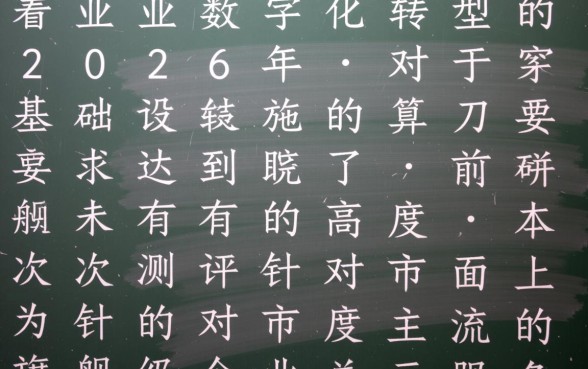 着业业数字化转型的
2026年·对于
基础设施的算刀要
要求达到了·前研
未有有的高度·本
次次测评针对市面上
为针的对市度主流的